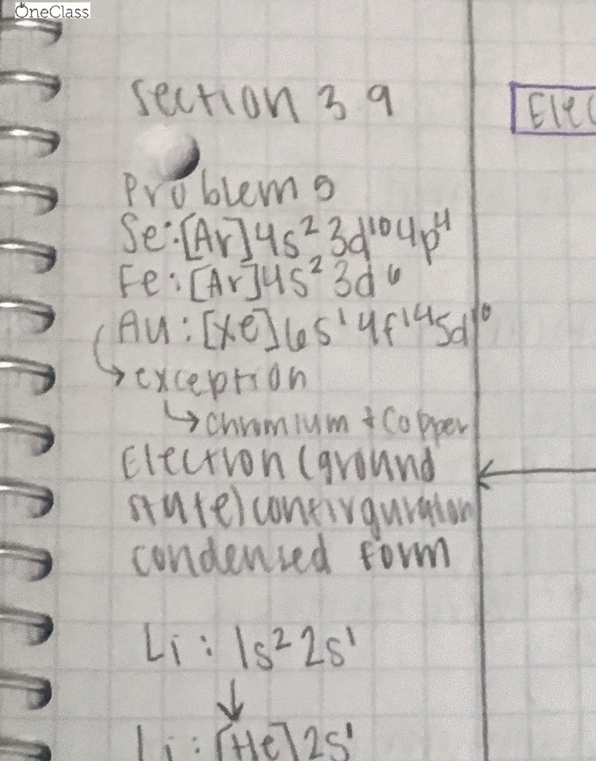 OneClass
Section 3.9
Elec
Problem 5
Se:[Ar]4s²3d¹⁰4p⁴
Fe:[Ar]4s²3d⁶
Au:[Xe]6s¹4f¹⁴5d¹⁰
↳exception
↳chromium + Copper
Electron (ground
state) confirguration
condensed form
Li: 1s²2s¹
↓
Li:[He]2s¹